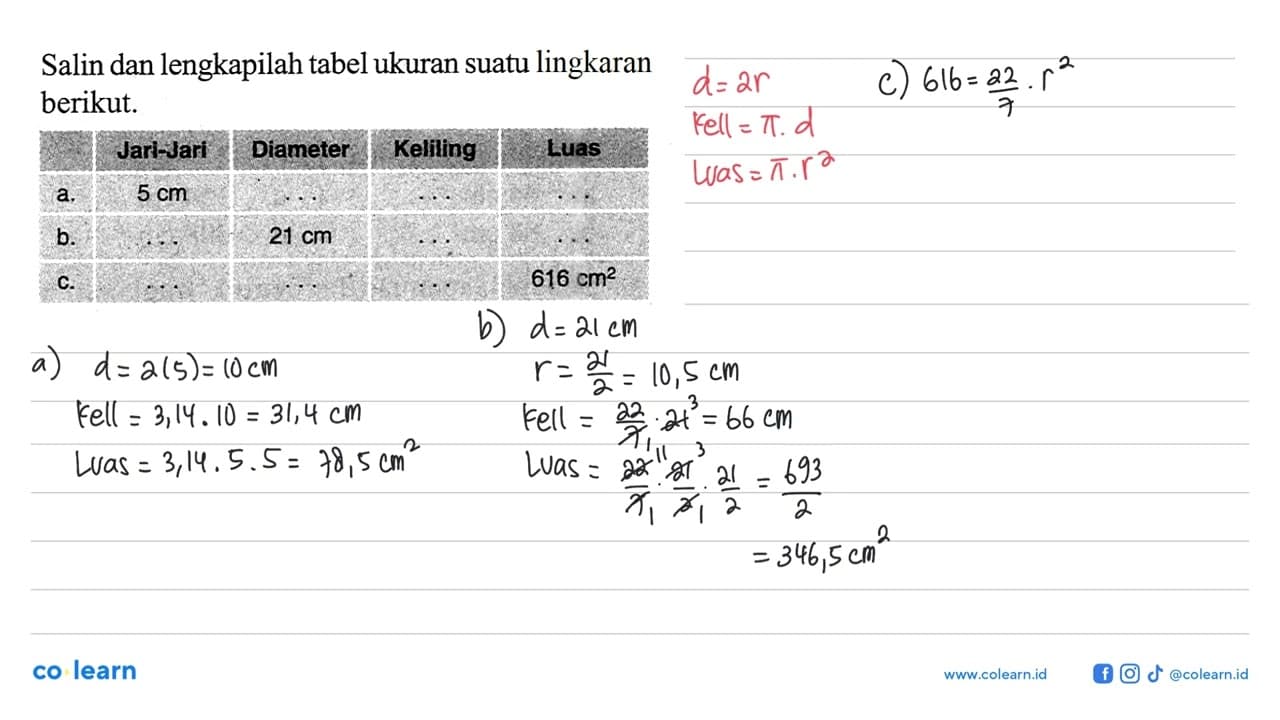 Salin dan lengkapilah tabel ukuran suatu lingkaran
berikut.
Jari-Jari Diameter Keliling Luas
a. 5 cm ... ... ...
b. ... 21 cm ... ...
c. ... ... ... 616 cm²
d = 2r
Kell = π . d
Luas = π . r²
c) 616 = 22/7 . r²
a) d = 2(5) = 10 cm
Kell = 3,14 . 10 = 31,4 cm
Luas = 3,14 . 5 . 5 = 78,5 cm²
b) d = 21 cm
r = 21/2 = 10,5 cm
Kell = 22/7 1 . 21 3 = 66 cm
Luas = 22 11/7 1 . 21 3/2 1 . 21/2 = 693/2
= 346,5 cm²
co learn
www.colearn.id
@colearn.id